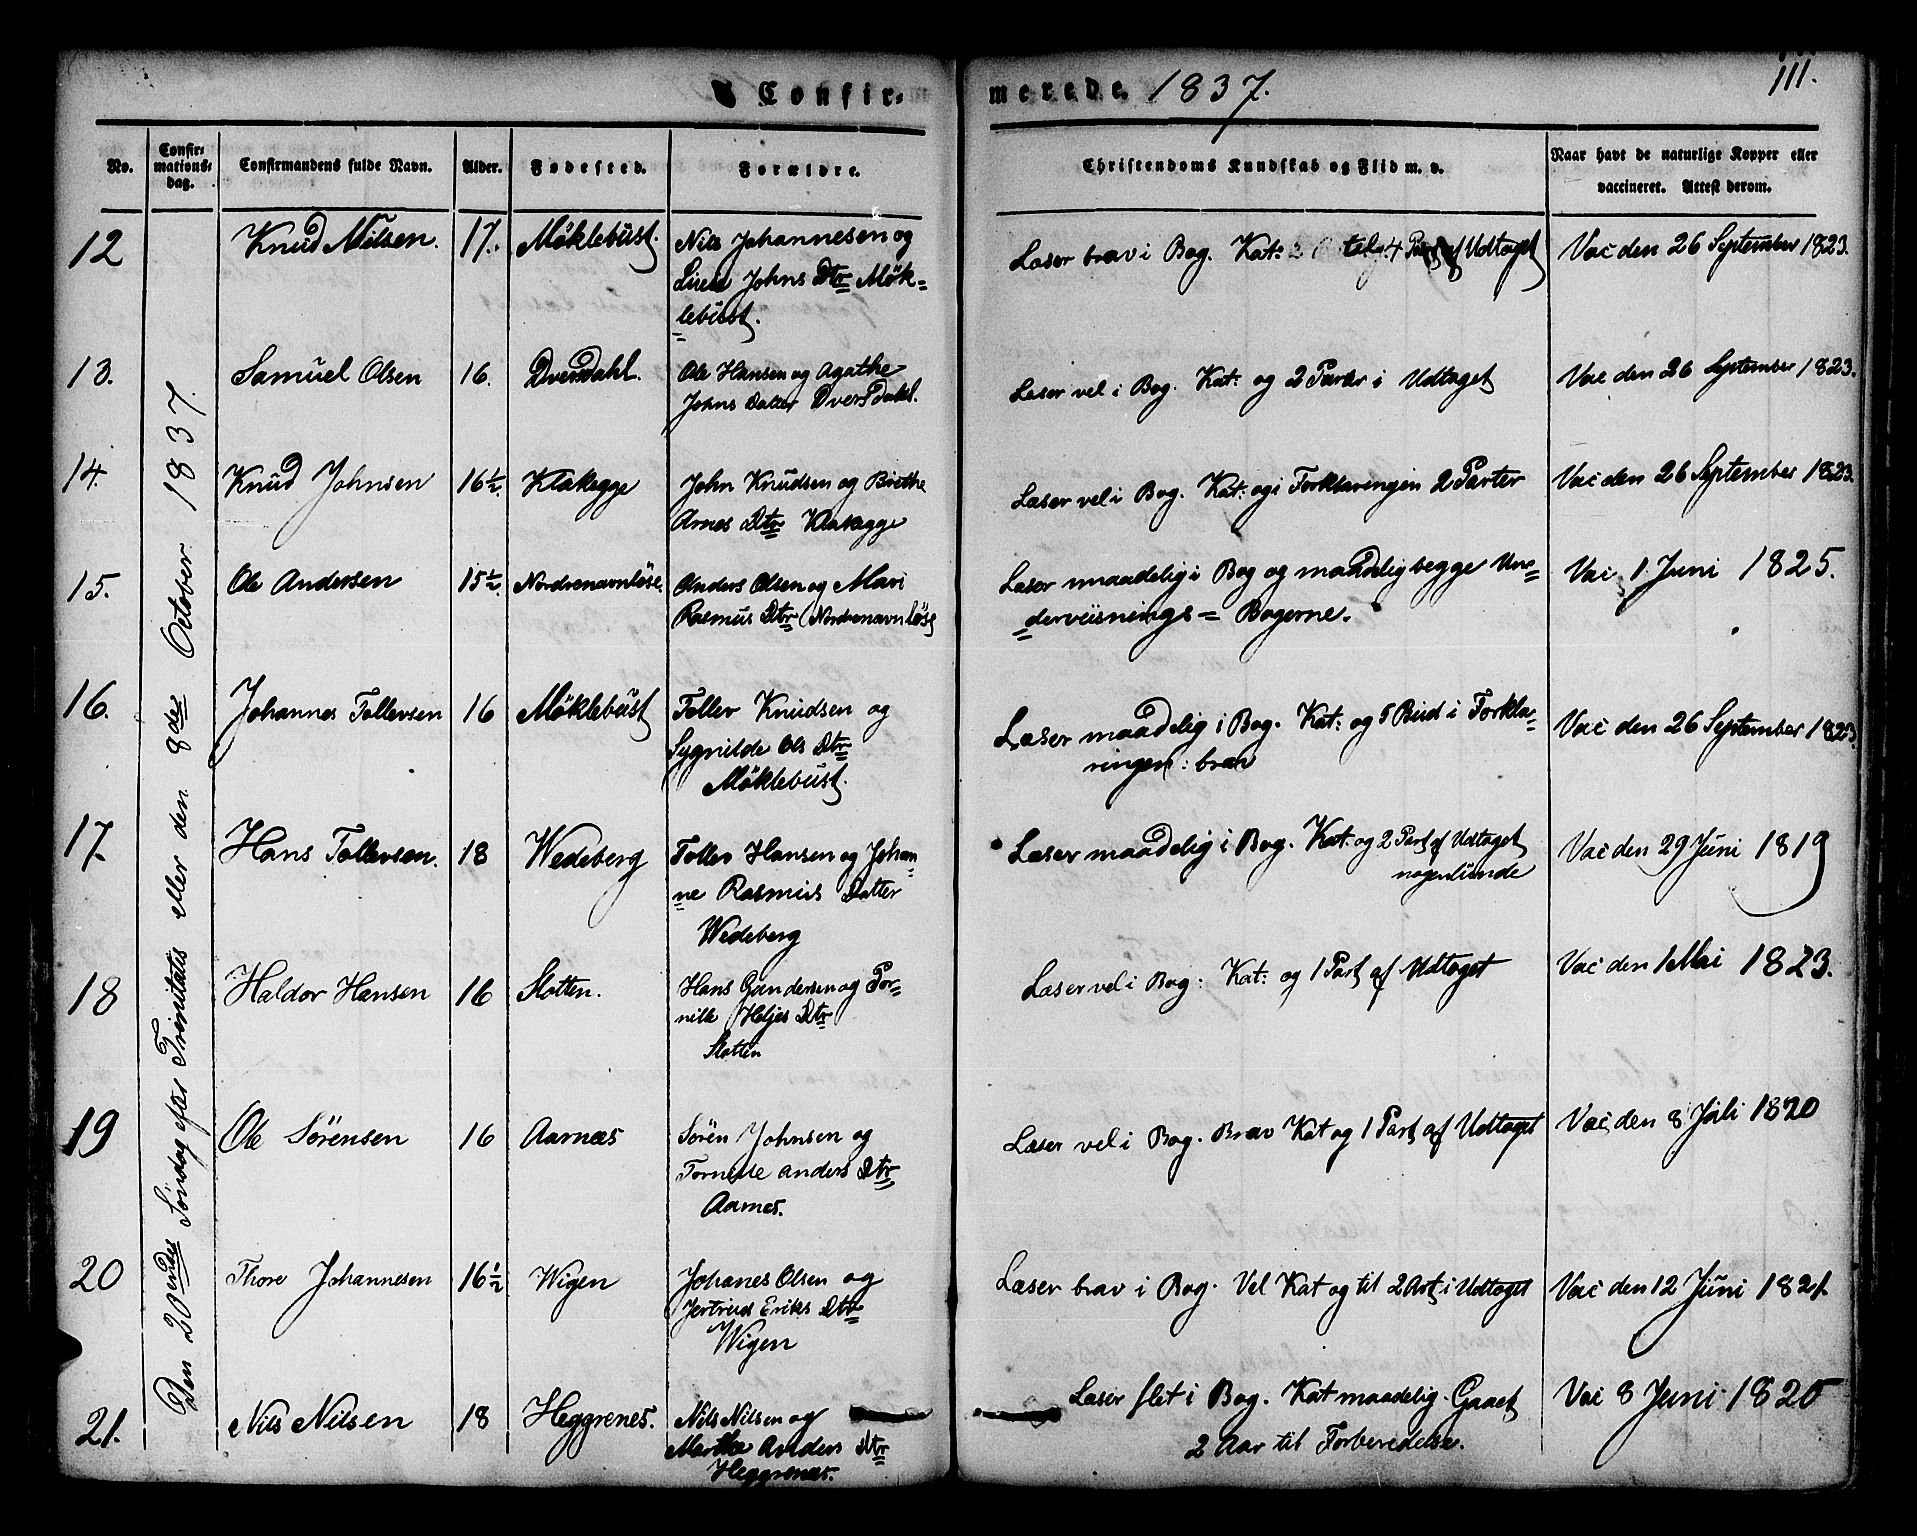 Confir-
merede. 1837.
111.
No.
Confir-
mations-
dag.
Confirmandens fulde Navn.
Alder.
Fødested.
Forældre.
Christendoms Kundskab og Flid m. v.
Naar havt de naturlige Kopper eller
vaccineret. Attest derom.
Den 20endes Søndag efter Trinitatis eller den 8des October 1837.
12 Knud Nilsen. 17. Møklebust. Nils Johannesen og
Johns Dtr Møk=
=lebust.
Læser brav i Bog. Kat: til 4 Part af Udtoget
Vac den 26 September 1823.
13. Samuel Olsen 16. Dversdahl. Ole Hansen og Agathe
Johns Datter Dversdahl.
Læser vel i Bog. Kat: og 2 Parter i Udtoget
Vac den 26 September 1823.
14. Knud Johnsen 16½. Klakegge John Knudsen og Brethe
Arnes Dtr Klakegge
Læser vel i Bog. Kat: og i Forklaringen 2 Parter
Vac den 26 September 1823.
15. Ole Andersen 15½ Nordrenavnløse. Anders Olsen og Mari
Rasmus Dtr Nordrenavnløse
Læser maadelig i Bog og maadelig begge Un=
=derviisnings= Bogerne.
Vac 1 Juni 1825.
16. Johannes Tollevsen 16 Møklebust Tollev Knudsen og
Sygnilde Ols Dtr
Møklebust.
Læser maadelig i Bog. Kat: og 5 Bud i Forkla=
ringen: brav
Vac den 26 September 1823.
17. Hans Tollevsen. 18 Wedeberg Tollev Hansen og Johan
=ne Rasmus Datter
Wedeberg
Læser maadelig i Bog. Kat: og 2 Part af Udtoget
nogenlunde
Vac den 29 Juni 1819
18 Haldor Hansen 16 Slotten. Hans Gundersen og Por=
nille Heljes Dtr
Slotten
Læser vel i Bog: Kat: og 1 Part af Udtoget
Vac den 1 Mai 1823.
19 Ole Sørensen 16 Aarnæs Søren Johnsen og
Anders Dtr
Aarnes.
Læser vel i Bog. Brav Kat og 1 Part af Udtoget
Vac den 8 Juli 1820
20 Thore Johannesen 16½ Wigen Johanes Olsen og
Jertrud Eriks Dtr
Wigen
Læser brav i Bog. Vel Kat og til 2 Art i Udtoget
Vac den 12 Juni 1821.
21. Nils Nilsen 18 Heggrenes. Nils Nilsen og
Marthe Anders Dtr
Heggrenæs.
Læser slet i Bog. Kat maadelig. Gaaet
2 Aar til Forberedelse.
Vac 8 Juni 1820